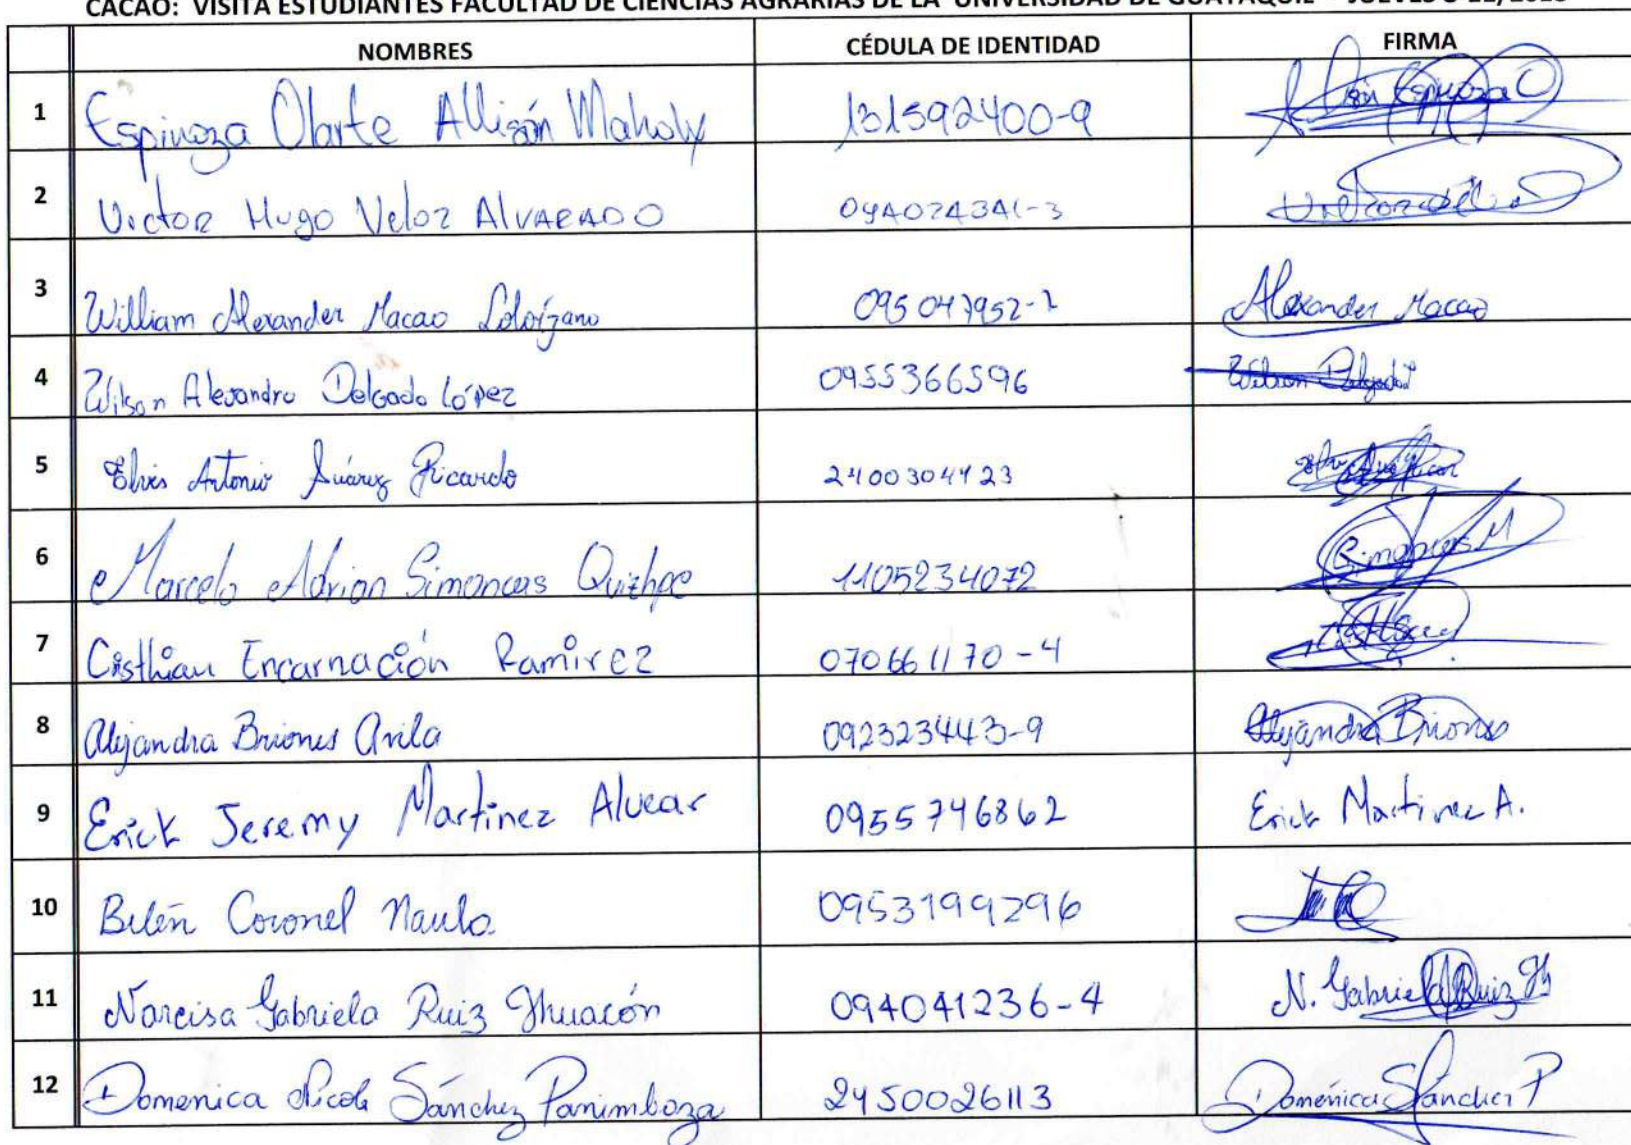 CACAO: VISITA ESTUDIANTES FACULTAD DE CIENCIAS AGRARIAS DE LA UNIVERSIDAD DE GUAYAQUIL - JUEVES
NOMBRES CÉDULA DE IDENTIDAD FIRMA
1 Espinoza Olarte Allisón Maholy 131592400-9
2 Victor Hugo Veloz ALVARADO
3 William Alexander Macao 095047952-1 Alexander Macao
4 Wilson Alexandro Delgado López 0955366596 Wilson Delgado
5 Elvis Antonio Suárez Ricardo 2400304423
6 Marcelo Adrian Simancas Quizhpe 1105234072 Simancas M
7 Cristhian Encarnación Ramírez 070661170-4
8 Alejandra Briones Avila 092323443-9 Alejandra Briones
9 Erick Jeremy Martinez Alvear 0955746862 Erick Martinez A.
10 Belén Coronel Naula 0953199296
11 Narcisa Gabriela Ruiz 094041236-4 N. Gabriela Ruiz
12 Domenica Nicole Sánchez Panimboza 2450026113 Doménica Sánchez P